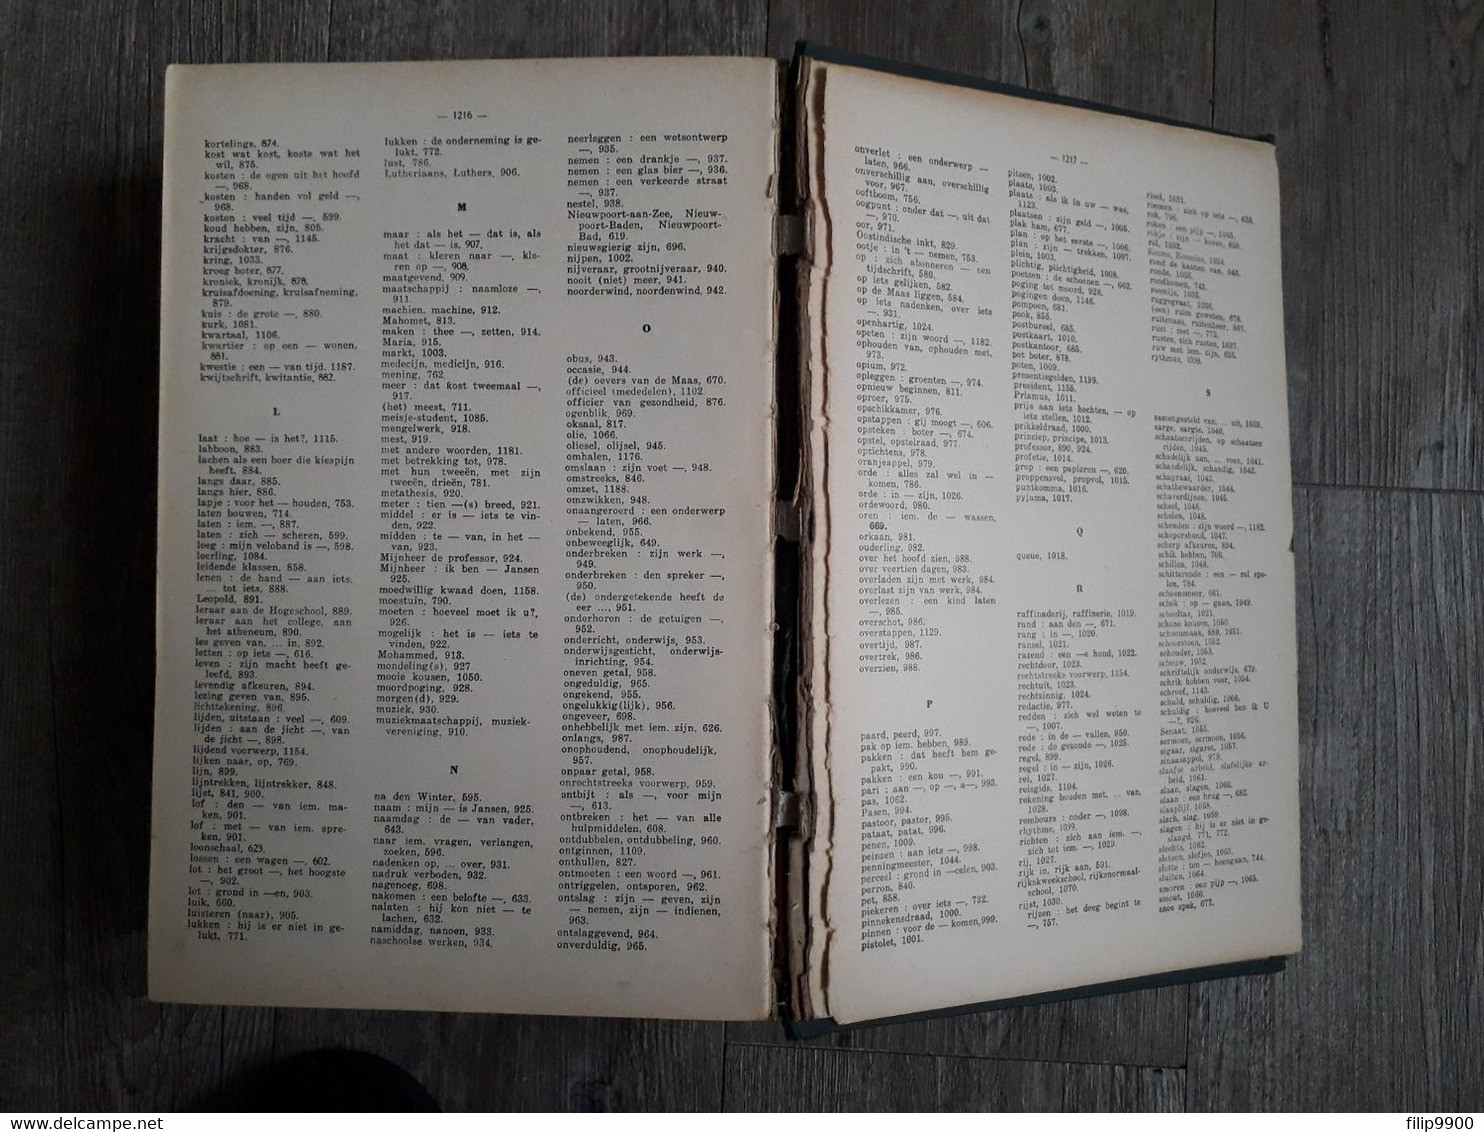 — 1216 —
kortelings, 674.
kost wat kost, koste wat het
wil, 875.
kosten : de ogen uit het hoofd
—, 968.
kosten : handen vol geld —,
968.
kosten : veel tijd —, 599.
koud hebben, zijn, 805.
kracht : van —, 1145.
krijgsdokter, 876.
kring, 1033.
kroeg boter, 877.
kroniek, kronijk, 878.
kruisafdoening, kruisafneming,
879.
kuis : de grote —, 880.
kurk, 1081.
kwartaal, 1106.
kwartier : op een — wonen,
881.
kwestie : een — van tijd. 1187.
kwijtschrift, kwitantie, 882.
L
laat : hoe — is het?, 1115.
labboon, 883.
lachen als een boer die kiespijn
heeft, 884.
langs daar, 885.
langs hier, 886.
lapje : voor het — houden, 753.
laten bouwen, 714.
laten : iem. —, 887.
laten : zich — scheren, 599.
leeg : mijn veloband is —, 598.
leerling, 1084.
leidende klassen, 858.
lenen : de hand — aan iets,
... tot iets, 888.
Leopold, 891.
leraar aan de Hogeschool, 889.
leraar aan het college, aan
het atheneum, 890.
les geven van, ... in, 892.
letten : op iets —, 616.
leven : zijn macht heeft ge-
leefd, 893.
levendig afkeuren, 894.
lezing geven van, 895.
lichttekening, 896.
lijden, uitstaan : veel —, 609.
lijden : aan de jicht —, van
de jicht —, 898.
lijdend voorwerp, 1154.
lijken naar, op, 769.
lijn, 899.
lijntrekken, lijntrekker, 848.
lijst, 841, 900.
lof : den — van iem. ma-
ken, 901.
lof : met — van iem. spre-
ken, 901.
loonschaal, 623.
lossen : een wagen —, 602.
lot : het groot —, het hoogste
—, 902.
lot : grond in —en, 903.
luik, 660.
luisteren (naar), 905.
lukken : hij is er niet in ge-
lukt, 771.
lukken : de onderneming is ge-
lukt, 772.
lust, 786.
Lutheriaans, Luthers, 906.
M
maar : als het — dat is, als
het dat — is, 907.
maat : kleren naar —, kle-
ren op —, 908.
maatgevend, 909.
maatschappij : naamloze —,
911.
machien, machine, 912.
Mahomet, 813.
maken : thee —, zetten, 914.
Maria, 915.
markt, 1003.
medecijn, medicijn, 916.
mening, 762.
meer : dat kost tweemaal —,
917.
(het) meest, 711.
meisje-student, 1085.
mengelwerk, 918.
mest, 919.
met andere woorden, 1181.
met betrekking tot, 978.
met hun tweeën, met zijn
tweeën, drieën, 781.
metathesis, 920.
meter : tien —(s) breed, 921.
middel : er is — iets te vin-
den, 922.
midden : te — van, in het —
van, 923.
Mijnheer de professor, 924.
Mijnheer : ik ben — Jansen
925.
moedwillig kwaad doen, 1158.
moestuin, 790.
moeten : hoeveel moet ik u?,
926.
mogelijk : het is — iets te
vinden, 922.
Mohammed, 913.
mondeling(s), 927.
mooie kousen, 1050.
moordpoging, 928.
morgen(d), 929.
muziek, 930.
muziekmaatschappij, muziek-
vereniging, 910.
N
na den Winter, 595.
naam : mijn — is Jansen, 925.
naamdag : de — van vader,
643.
naar iem. vragen, verlangen,
zoeken, 596.
nadenken op, ... over, 931.
nadruk verboden, 932.
nagenoeg, 698.
nakomen : een belofte —, 633.
nalaten : hij kon niet — te
lachen, 632.
namiddag, nanoen, 933.
naschoolse werken, 934.
neerleggen : een wetsontwerp
—, 935.
nemen : een drankje —, 937.
nemen : een glas bier —, 936.
nemen : een verkeerde straat
—, 937.
nestel, 938.
Nieuwpoort-aan-Zee, Nieuw-
poort-Baden, Nieuwpoort-
Bad, 619.
nieuwsgierig zijn, 696.
nijpen, 1002.
nijveraar, grootnijveraar, 940.
nooit (niet) meer, 941.
noorderwind, noordenwind, 942.
O
obus, 943.
occasie, 944.
(de) oevers van de Maas, 670.
officieel (mededelen), 1102.
officier van gezondheid, 876.
ogenblik, 969.
oksaal, 817.
olie, 1066.
oliesel, olijsel, 945.
omhalen, 1176.
omslaan : zijn voet —, 948.
omstreeks, 846.
omzet, 1188.
omzwikken, 948.
onaangeroerd : een onderwerp
— laten, 966.
onbekend, 955.
onbeweeglijk, 649.
onderbreken : zijn werk —,
949.
onderbreken : den spreker —,
950.
(de) ondergetekende heeft de
eer ..., 951.
onderhoren : de getuigen —,
952.
onderricht, onderwijs, 953.
onderwijsgesticht, onderwijs-
inrichting, 954.
oneven getal, 958.
ongeduldig, 965.
ongekend, 955.
ongelukkig(lijk), 956.
ongeveer, 698.
onhebbelijk met iem. zijn, 626.
onlangs, 987.
onophoudend, onophoudelijk,
957.
onpaar getal, 958.
onrechtstreeks voorwerp, 959.
ontbijt : als —, voor mijn
—, 613.
ontbreken : het — van alle
hulpmiddelen, 608.
ontdubbelen, ontdubbeling, 960.
ontginnen, 1109.
onthullen, 827.
ontmoeten : een woord —, 961.
ontriggelen, ontsporen, 962.
ontslag : zijn — geven, zijn
— nemen, zijn — indienen,
963.
ontslaggevend, 964.
onverduldig, 965.
— 1217 —
onverlet : een onderwerp —
laten, 966.
onverschillig aan, overschillig
voor, 967.
ooftboom, 756.
oogpunt : onder dat —, uit dat
—, 970.
oor, 971.
Oostindische inkt, 829.
ootje : in 't — nemen, 753.
op : zich abonneren — een
tijdschrift, 580.
op iets gelijken, 582.
op de Maas liggen, 584.
op iets nadenken, over iets
—, 931.
openhartig, 1024.
opeten : zijn woord —, 1182.
ophouden van, ophouden met,
973.
opium, 972.
opleggen : groenten —, 974.
opnieuw beginnen, 811.
oproer, 975.
opschikkamer, 976.
opstappen : gij moogt —, 606.
opsteken : boter —, 674.
opstel, opstelraad, 977.
opzichtens, 978.
oranjeappel, 979.
orde : alles zal wel in —
komen, 786.
orde : in — zijn, 1026.
ordewoord, 980.
oren : iem. de — wassen,
669.
orkaan, 981.
ouderling, 982.
over het hoofd zien, 988.
over veertien dagen, 983.
overladen zijn met werk, 984.
overlast zijn van werk, 984.
overlezen : een kind laten
—, 985.
overschot, 986.
overstappen, 1129.
overtijd, 987.
overtrek, 986.
overzien, 988.
P
paard, peerd, 997.
pak op iem. hebben, 989.
pakken : dat heeft hem ge-
pakt, 990.
pakken : een kou —, 991.
pari : aan —, op —, a—, 993.
pas, 1062.
Pasen, 994.
pastoor, pastor, 995.
pataat, patat, 996.
penen, 1009.
peinzen : aan iets —, 998.
penningmeester, 1044.
perceel : grond in —celen, 903.
perron, 840.
pet, 858.
piekeren : over iets —, 732.
pinnekensdraad, 1000.
pinnen : voor de — komen,999.
pistolet, 1001.
pitsen, 1002.
plaats, 1003.
plaats : als ik in uw — was,
1123.
plaatsen : zijn geld —, 1005.
plak ham, 677.
plan : op het eerste —, 1006.
plan : zijn — trekken, 1007.
plein, 1003.
plichtig, plichtigheid, 1008.
poetsen : de schoenen —, 662.
poging tot moord, 928.
pogingen doen, 1146.
pompoen, 681.
pook, 855.
postbureel, 685.
postkaart, 1010.
postkantoor, 685.
pot boter, 878.
poten, 1009.
presentiegelden, 1199.
president, 1155.
Priamus, 1011.
prijs aan iets hechten, — op
iets stellen, 1012.
prikkeldraad, 1000.
princiep, principe, 1013.
professor, 890, 924.
profetie, 1014.
prop : een papieren —, 620.
proppensvol, propvol, 1015.
puntkomma, 1016.
pyjama, 1017.
Q
queue, 1018.
R
raffinaderij, raffinerie, 1019.
rand : aan den —, 671.
rang : in —, 1020.
ransel, 1021.
razend : een —e hond, 1022.
rechtdoor, 1023.
rechtstreeks voorwerp, 1154.
rechtuit, 1023.
rechtzinnig, 1024.
redactie, 977.
redden : zich wel weten te
—, 1007.
rede : in de — vallen, 950.
rede : de gezonde —, 1025.
regel, 899.
regel : in — zijn, 1026.
rei, 1027.
reisgids, 1104.
rekening houden met, ... van,
1028.
rembours : onder —, 1098.
rhythme, 1039.
richten : zich aan iem. —,
zich tot iem. —, 1029.
rij, 1027.
rijk in, rijk aan, 591.
rijkskweekschool, rijksnormaal-
school, 1070.
rijst, 1030.
rijzen : het deeg begint te
—, 757.
riool, 1031.
roemen : zich op iets —, 638.
rok, 796.
roken : een pijp —, 1065.
rol, 1032.
Rooms, Romeins, 1034.
rond de kanten van, 846.
ronde, 1033.
rondkomen, 743.
roomijs, 1035.
ruggegraat, 1036.
(een) ruim geweten, 678.
ruitenaas, ruitenheer, 861.
rust : met —, 775.
rusten, zich rusten, 1037.
ruw met iem. zijn, 626.
rythmus, 1039.
S
samengesteld van, ... uit, 1039.
sarge, sargie, 1040.
schaatsenrijden, op schaatsen
rijden, 1045.
schadelijk aan, ... voor, 1041.
schandelijk, schandig, 1042.
schapraai, 1043.
schatbewaarder, 1044.
schaverdijnen, 1045.
scheel, 1046.
schelen, 1048.
schenden : zijn woord —, 1182.
schepershond, 1047.
scherp afkeuren, 894.
schik hebben, 706.
schillen, 1048.
schitterende : een — rol spe-
len, 784.
schoensmeer, 661.
schok : op — gaan, 1049.
schooltas, 1021.
schone kousen, 1050.
schoonmaak, 880, 1051.
schoorsteen, 1052.
schouder, 1053.
schouw, 1052.
schriftelijk onderwijs, 679.
schrik hebben voor, 1054.
schroef, 1143.
schuld, schuldig, 1008.
schuldig : hoeveel ben ik U
—?, 926.
Senaat, 1055.
sermoen, sermoon, 1056.
sigaar, sigaret, 1057.
sinaasappel, 979.
slaafse arbeid, slafelijke ar-
beid, 1061.
slaan, slagen, 1060.
slaan : een brug —, 682.
slaaplijf, 1058.
slach, slag, 1059.
slagen : hij is er niet in ge-
slaagd, 771, 772.
slechts, 1062.
sletsen, slofjes, 1063.
slotte : ten — hoengaan, 744.
sluiten, 1064.
smoren : een pijp —, 1065.
smout, 1066.
snee spek, 677.
filip9900